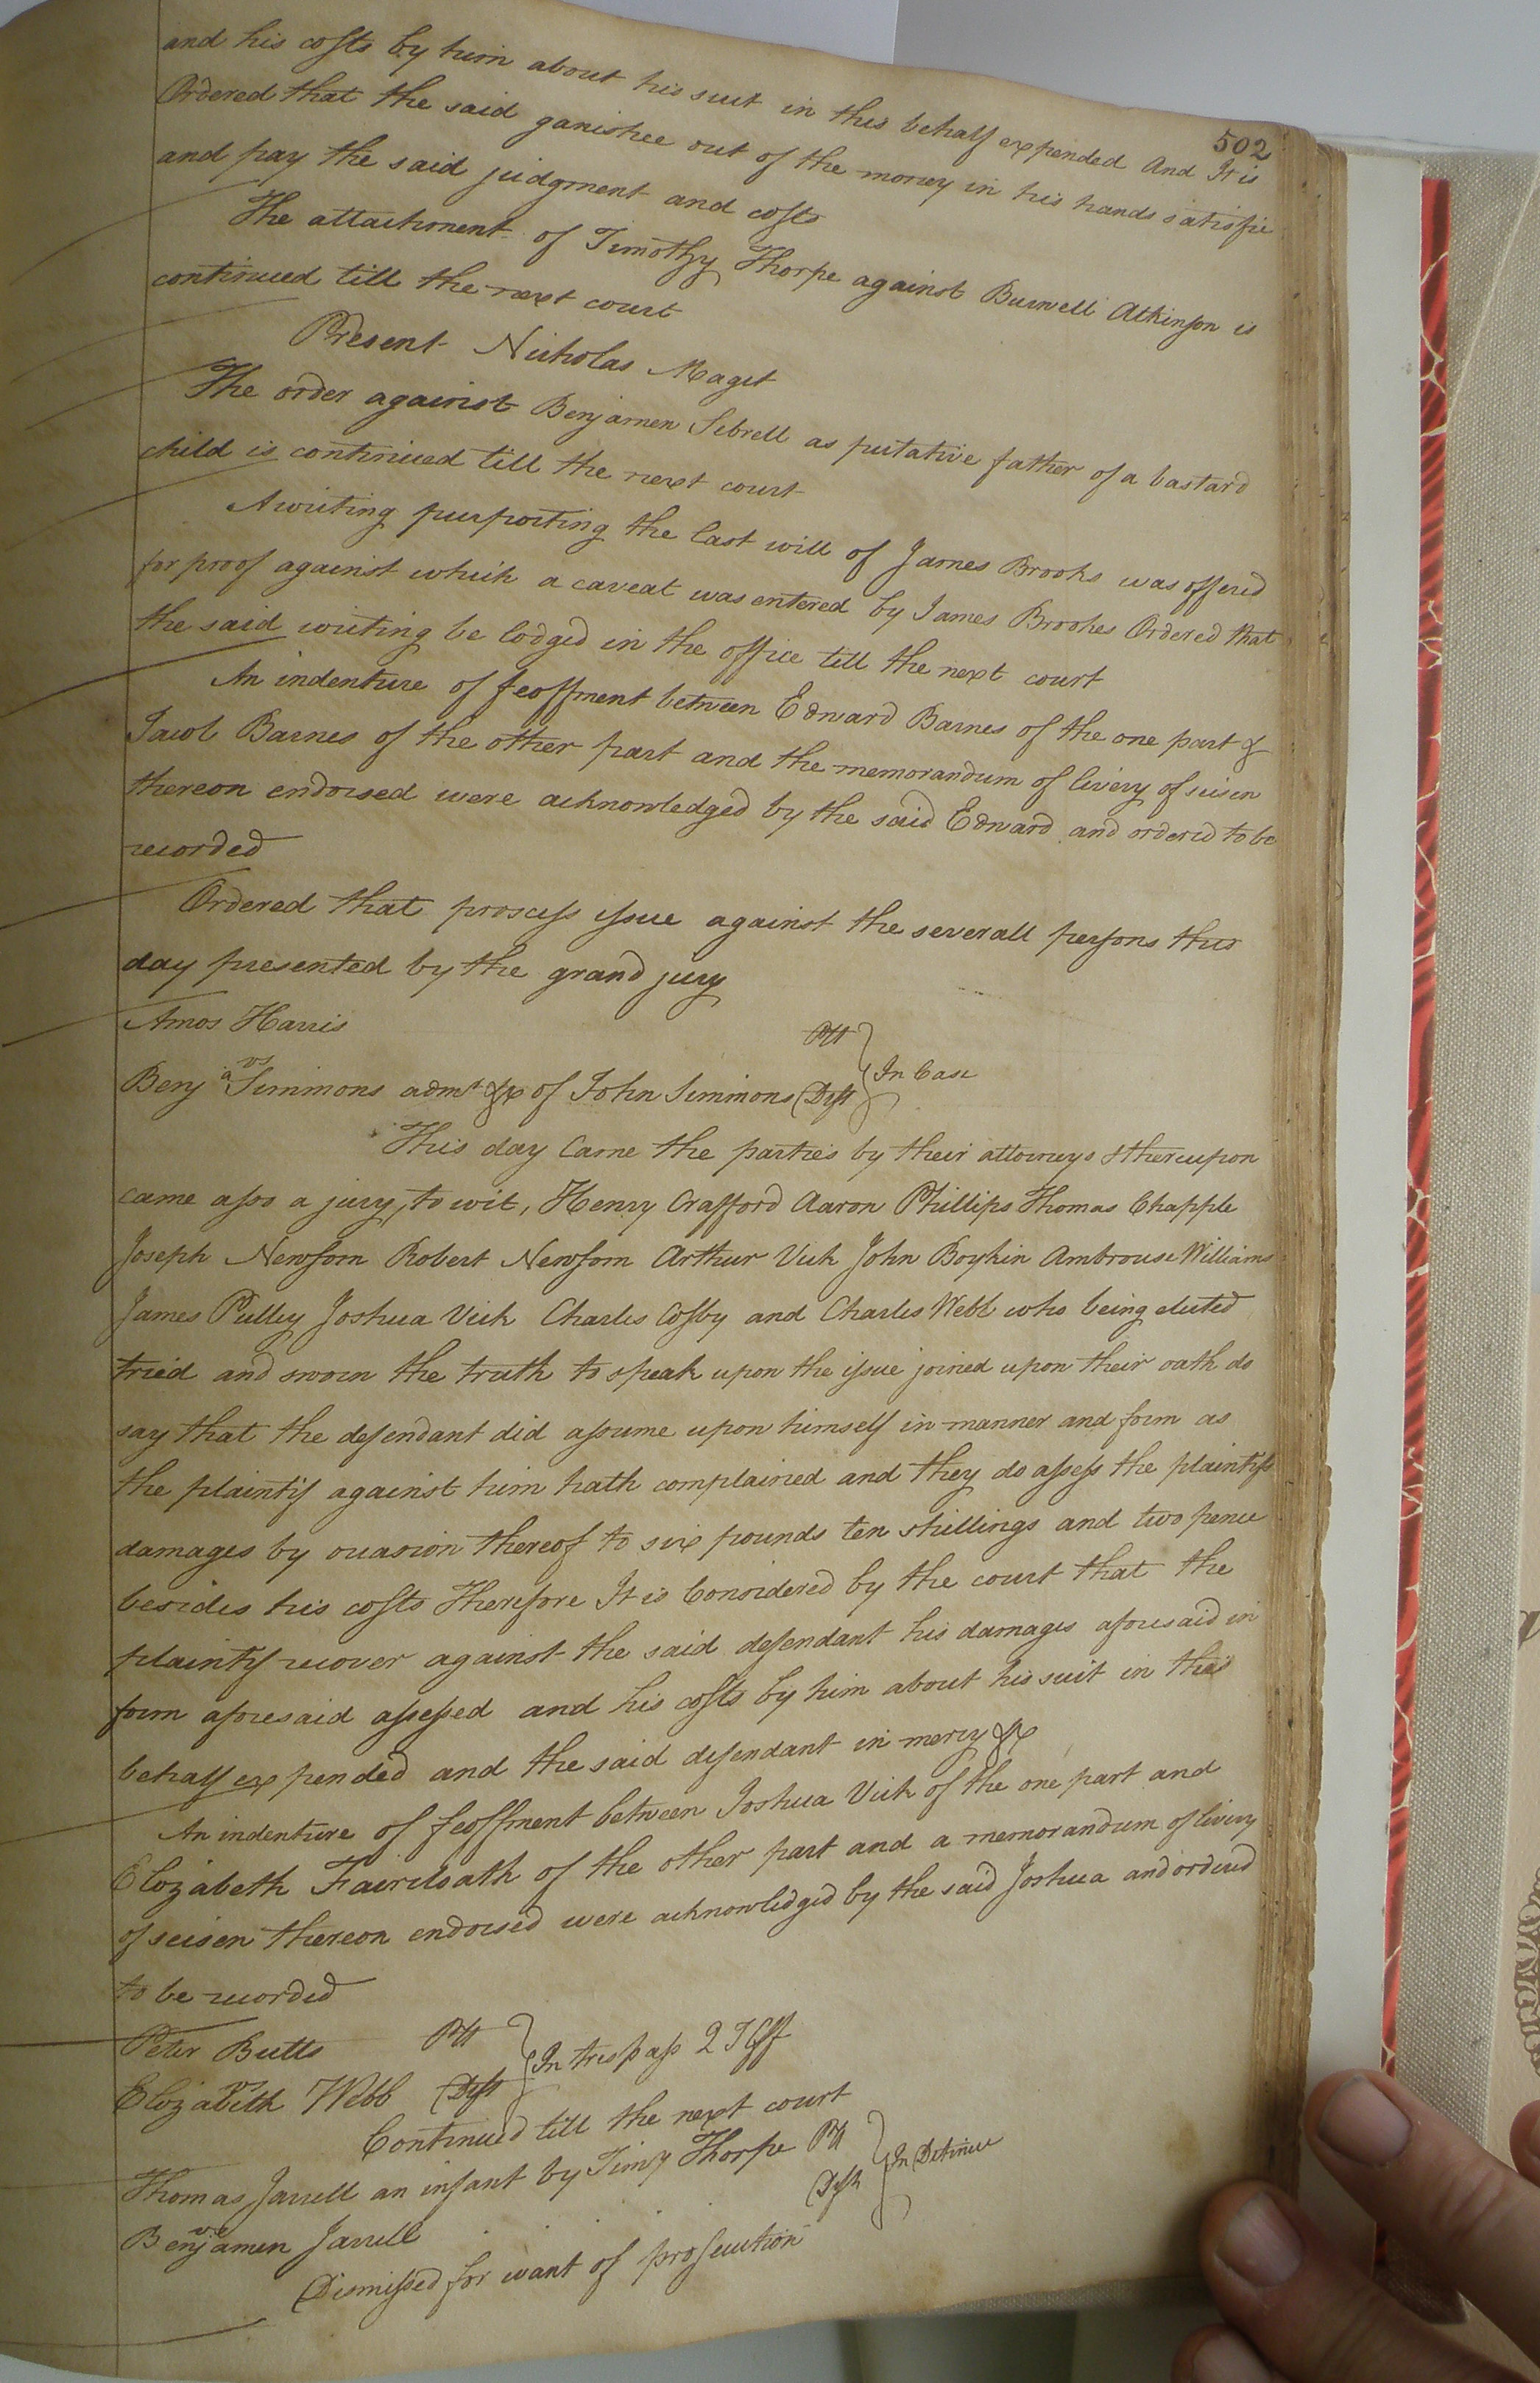 502
and his costs by him about his suit in this behalf expended And It is
Ordered that the said ganishee out of the money in his hands satisfie
and pay the said judgment and costs
The attachment of Timothy Thorpe against Burwell Atkinson is
continued till the next court
Present Nicholas Maget
The order against Benjamen Sebrell as putative father of a bastard
child is continued till the next court
A writing purporting the last will of James Brooks was offered
for proof against which a caveat was entered by James Brookes Ordered that
the said writing be lodged in the office till the next court
An indenture of feoffment between Edward Barnes of the one part &
Jacob Barnes of the other part and the memorandum of livery of seisen
thereon endorsed were acknowledged by the said Edward and ordered to be
recorded
Ordered that proscess issue against the severall persons this
day presented by the grand jury
Amos Harris Plt
vs In Case
Benja Simmons admr &c of John Simmons Deft
This day Came the parties by their attorneys & thereupon
came also a jury, to wit, Henry Crafford Aaron Phillips Thomas Chapple
Joseph Newsom Robert Newsom Arthur Vick John Boykin Ambrouse Williams
James Pulley Joshua Vick Charles Cosby and Charles Webb who being elected
tried and sworn the truth to speak upon the issue joined upon their oath do
say that the defendant did assume upon himself in manner and form as
the plaintif against him hath complained and they do assess the plaintifs
damages by occasion thereof to six pounds ten shillings and two pence
besides his costs Therefore It is Considered by the court that the
plaintif recover against the said defendant his damages aforesaid in
form aforesaid assessed and his costs by him about his suit in this
behalf expended and the said defendant in mercy &c
An indenture of feoffment between Joshua Vick of the one part and
Elizabeth Faircloath of the other part and a memorandum of livery
of seisen thereon endorsed were acknowledged by the said Joshua and ordered
to be recorded
Peter Butts Plt
vs In trespass
Elizabeth Webb Deft
Continued till the next court
Thomas Jarrell an infant by Timy Thorpe Plt
vs In Detinue
Benjamen Jarrell Deft
Dismissed for want of prosecution